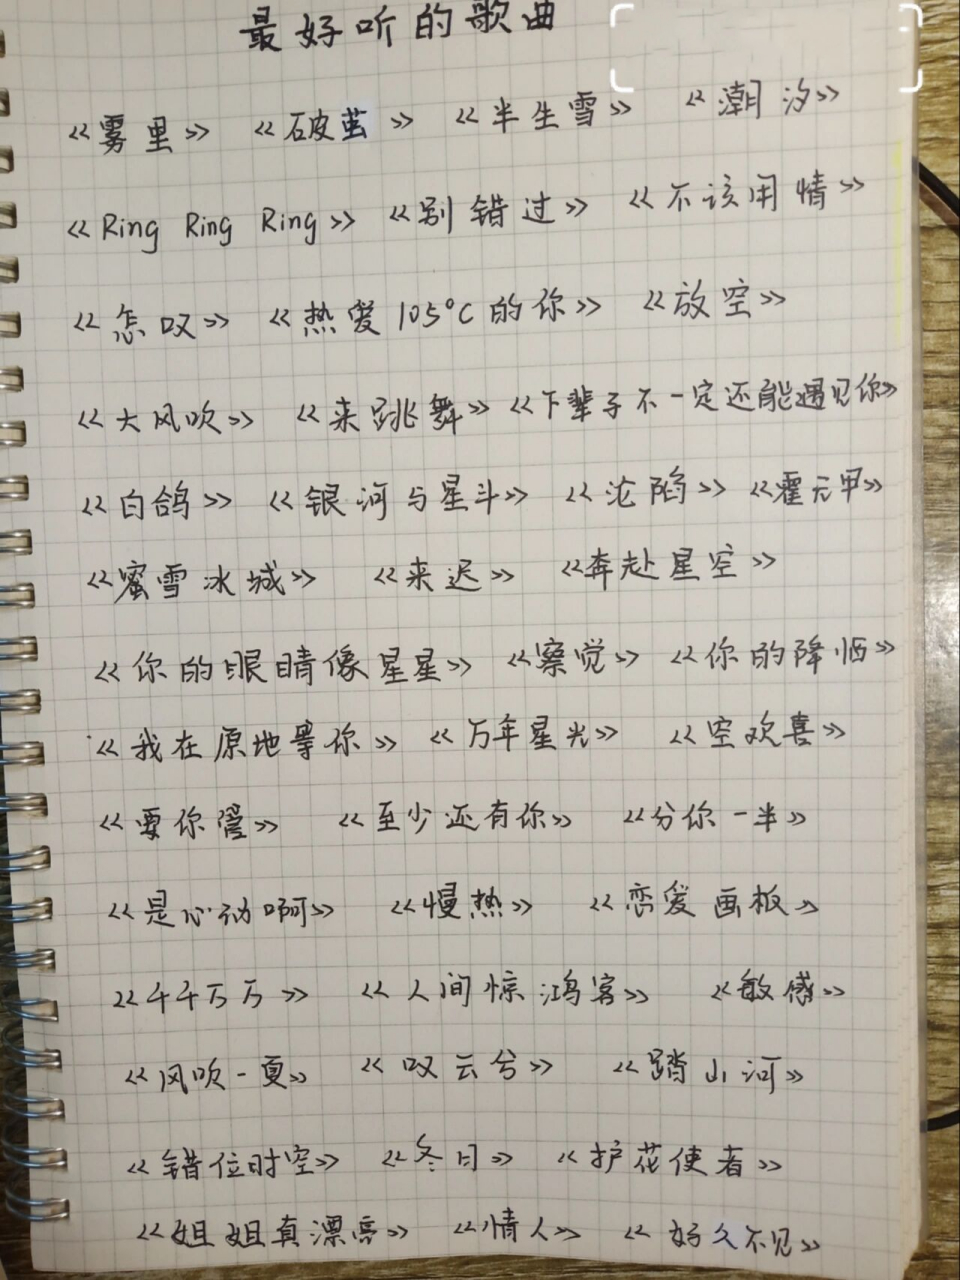 最好听的歌曲
《雾里》 《破茧》 《半生雪》 《潮汐》
《Ring Ring Ring》 《别错过》 《不该用情》
《怎叹》 《热爱105°C的你》 《放空》
《大风吹》 《来跳舞》 《下辈子不一定还能遇见你》
《白鸽》 《银河与星斗》 《沦陷》 《霍元甲》
《蜜雪冰城》 《来迟》 《奔赴星空》
《你的眼睛像星星》 《察觉》 《你的降临》
《我在原地等你》 《万年星光》 《空欢喜》
《要你管》 《至少还有你》 《分你一半》
《是心动啊》 《慢热》 《恋爱画板》
《千千万万》 《人间惊鸿客》 《敏感》
《风吹一夏》 《叹云兮》 《踏山河》
《错位时空》 《冬日》 《护花使者》
《姐姐真漂亮》 《情人》 《好久不见》